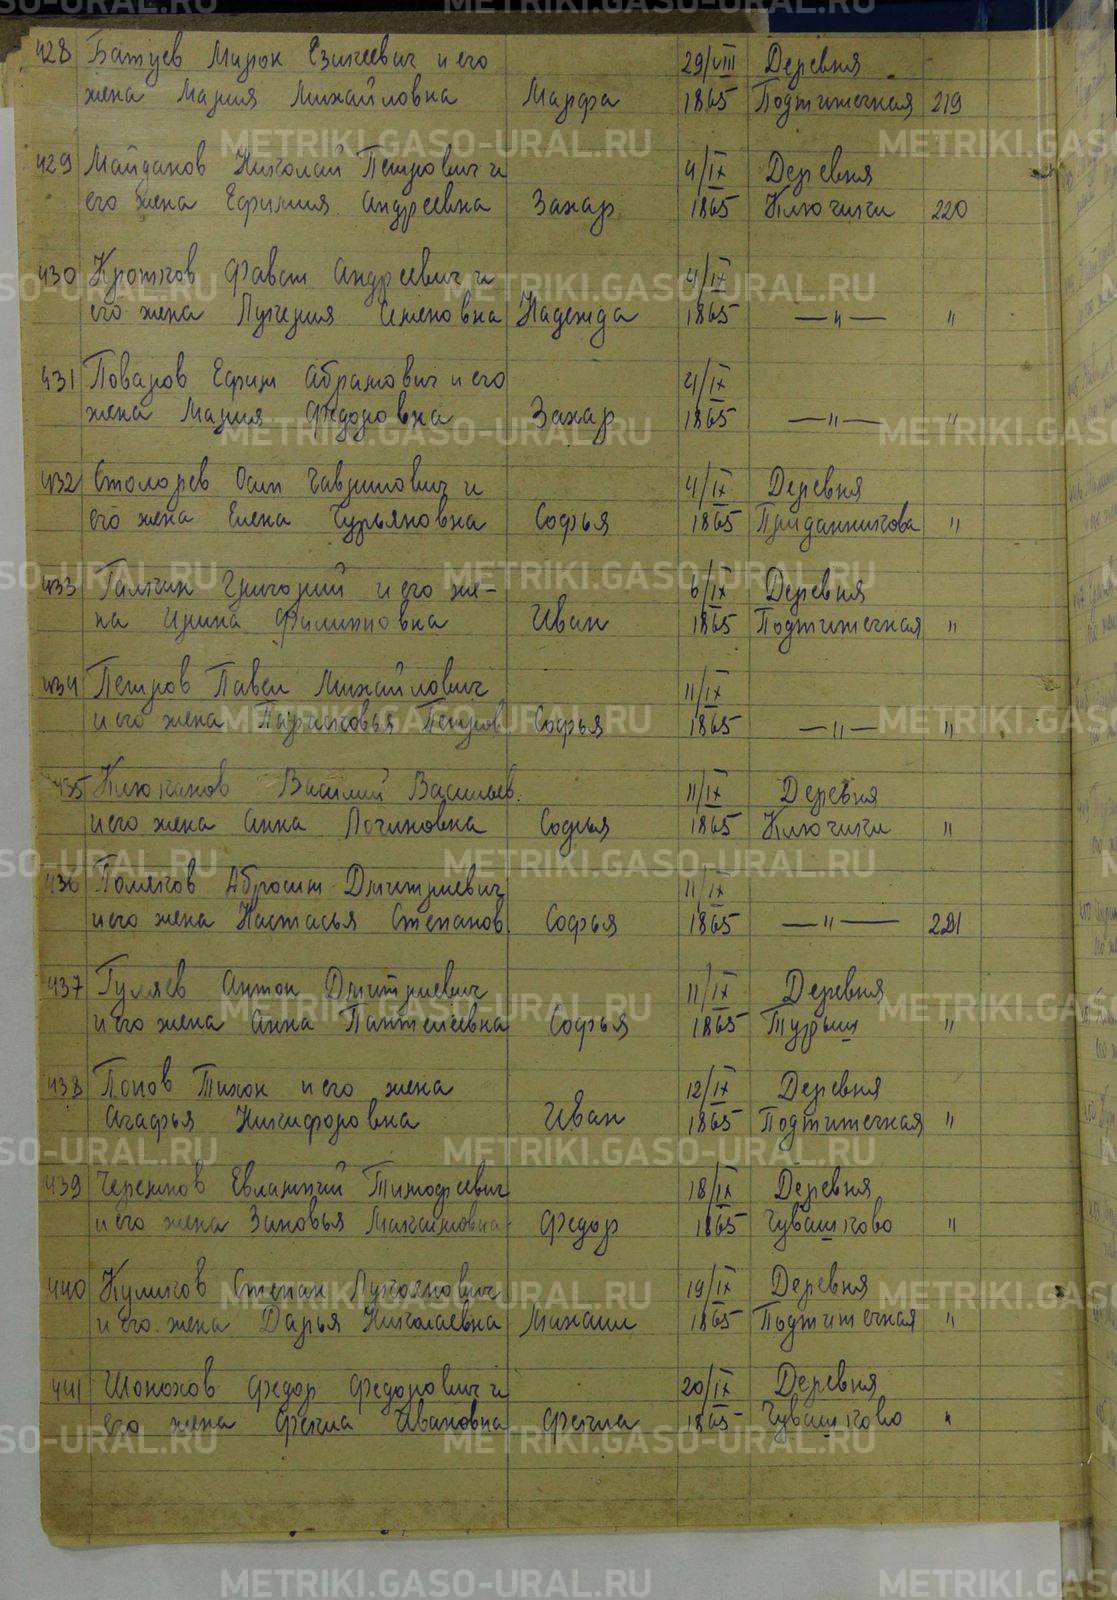 428 Батуев Мирон Езикеевич и его 29/VIII Деревня
жена Мария Михайловна Марфа 1865 Подтитечная 219
429 Майданов Николай Петрович и 4/IX Деревня
его жена Ефимия Андреевна Захар 1865 Ключики 220
430 Кротков Фавст Андреевич и 4/IX
его жена Лукерия Семеновна Надежда 1865 —"— "
431 Поваров Ефим Абрамович и его 4/IX
жена Мария Федоровна Захар 1865 —"— "
432 Столорев Осип Гаврилович и 4/IX Деревня
его жена Елена Гурьяновна Софья 1865 Приданникова "
433 Галкин Григорий и его же- 6/IX Деревня
на Ирина Филипповна Иван 1865 Подтитечная "
434 Петров Павел Михайлович 11/IX
и его жена Парасковья Петров Софья 1865 —"— "
435 Клюканов Василий Васильев. 11/IX Деревня
и его жена Анна Логиновна Софья 1865 Ключики "
436 Абросим Дмитриевич 11/IX
и его жена Настасья Степанов. Софья 1865 —"— 221
437 Гуляев Антон Дмитриевич 11/IX Деревня
и его жена Анна Пантелеевна Софья 1865 Турыш "
438 Попов Тихон и его жена 12/IX Деревня
Агафья Никифоровна Иван 1865 Подтитечная "
439 Черепнов Евлампий Тимофеевич 18/IX Деревня
и его жена Зиновья Максимовна Федор 1865 Чувашково "
440 Куликов Степан Лукоянович 19/IX Деревня
и его жена Дарья Николаевна Михаил 1865 Подтитечная "
441 Шонохов Федор Федорович и 20/IX Деревня
его жена Фекла Ивановна Фекла 1865 Чувашково "
METRIKI.GASO-URAL.RU